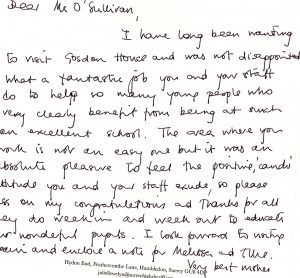 Dear Mr O'Sullivan,
I have long been wanting
to visit Gosden House and was not disappointed
what a fantastic job you and your staff
do to help so many young people who
very clearly benefit from being at such
an excellent school. The area where you
work is not an easy one but it was an
bsolute pleasure to feel the positive, 'can do'
titude you and your staff exude, so please
ss on my congratulations and thanks for all
ey do week in and week out to educate
r wonderful pupils. I look forward to
and enclose a note for Melissa and
Hydon End, Feathercombe Lane, Hambledon, Surrey GU8 4DP
Very
best wishes